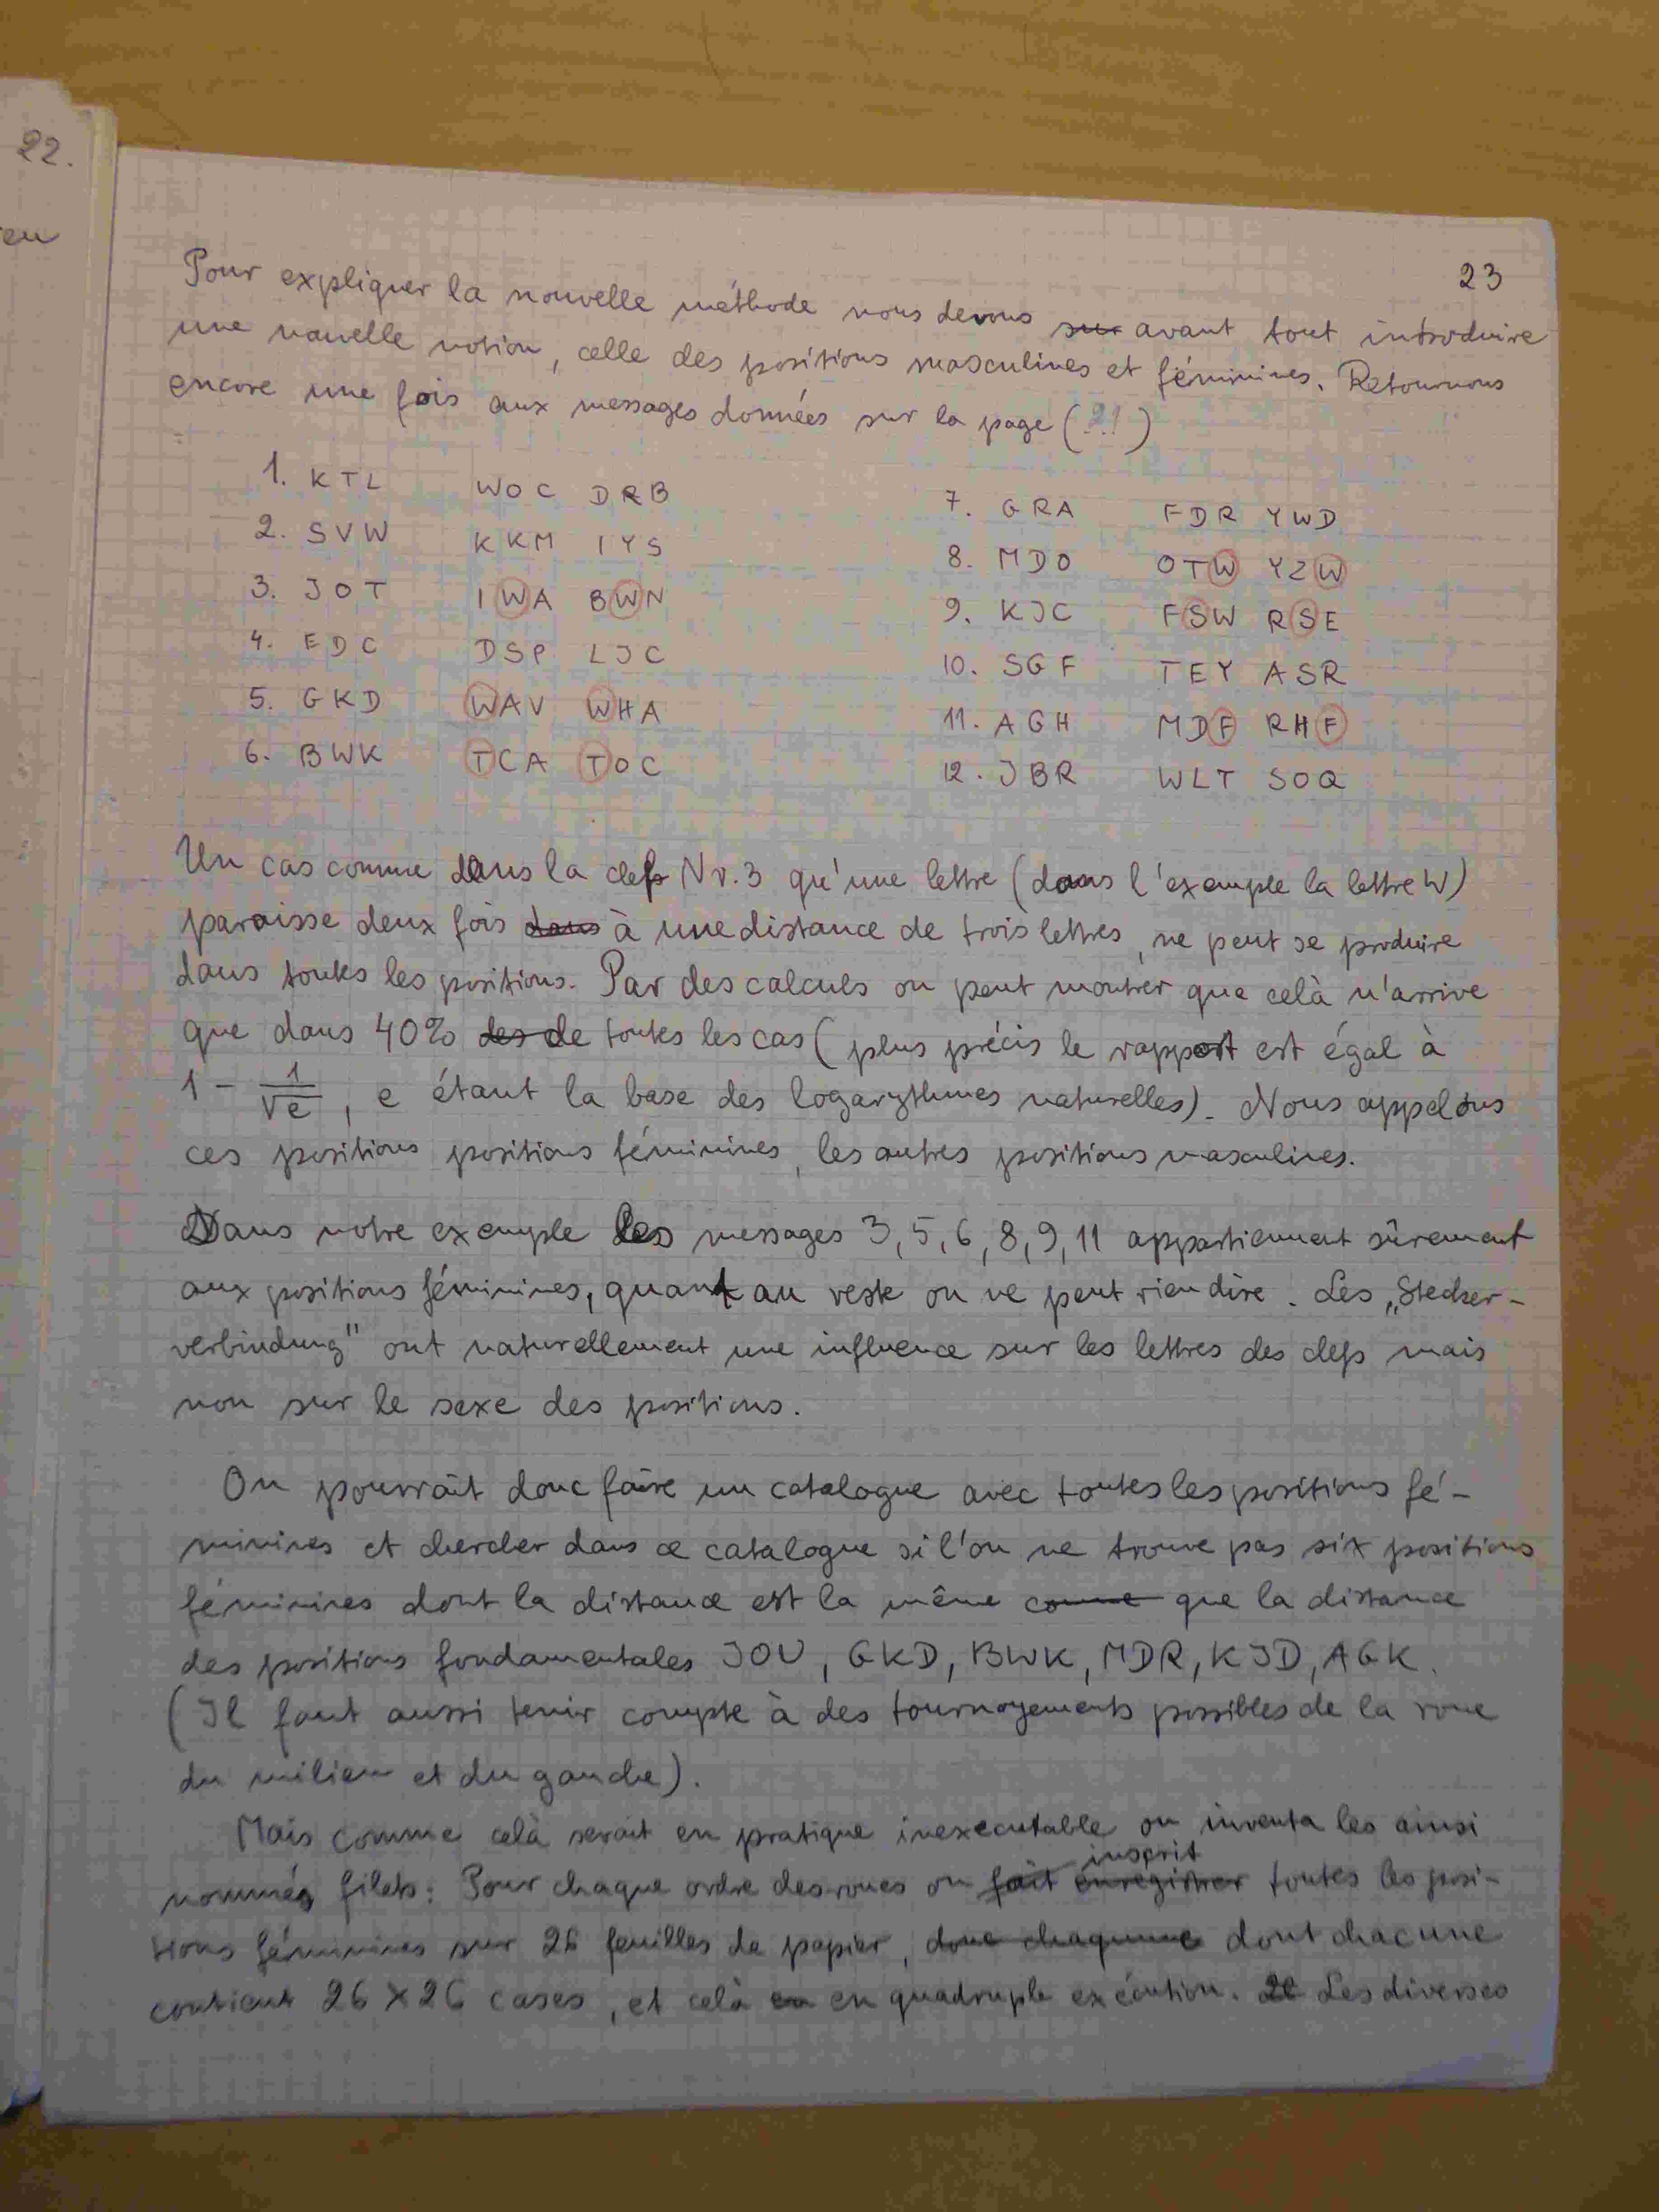 22.
en
23
Pour expliquer la nouvelle méthode nous devons sur avant tout introduire
une nouvelle notion, celle des positions masculines et féminines. Retournons
encore une fois aux messages données sur la page (21)
1. KTL WOC DRB
2. SVW KKM IYS
3. JOT IWA BWN
4. EDC DSP LJC
5. GKD WAV WHA
6. BWK TCA TOC
7. GRA FDR YWD
8. MDO OTW YZW
9. KJC FSW RSE
10. SGF TEY ASR
11. AGH MDF RHF
12. JBR WLT SOQ
Un cas comme dans la clef Nr. 3 qu'une lettre (dans l'exemple la lettre W)
paraisse deux fois dans à une distance de trois lettres, ne peut se produire
dans toutes les positions. Par des calculs on peut montrer que celà n'arrive
que dans 40% des de toutes les cas (plus précis le rapport est égal à
1 - 1/√e, e étant la base des logarythmes naturelles). Nous appelons
ces positions positions féminines, les autres positions masculines.
Dans notre exemple les messages 3, 5, 6, 8, 9, 11 appartiennent sûrement
aux positions féminines, quant au reste on ne peut rien dire. Les „Stecker-
verbindung" ont naturellement une influence sur les lettres des clefs mais
non sur le sexe des positions.
On pourrait donc faire un catalogue avec toutes les positions fé-
minines et chercher dans ce catalogue si l'on ne trouve pas six positions
féminines dont la distance est la même comme que la distance
des positions fondamentales JOU, GKD, BWK, MDR, KJD, AGK.
(Il faut aussi tenir compte à des tournoyements possibles de la roue
du milieu et du gauche).
Mais comme celà serait en pratique inexecutable on inventa les ainsi
inscrit
nommés filets: Pour chaque ordre des roues on fait enregistrer toutes les posi-
tions féminines sur 26 feuilles de papier, donc chaqune dont chacune
contient 26 × 26 cases, et celà en en quadruple exécution. Les diverses